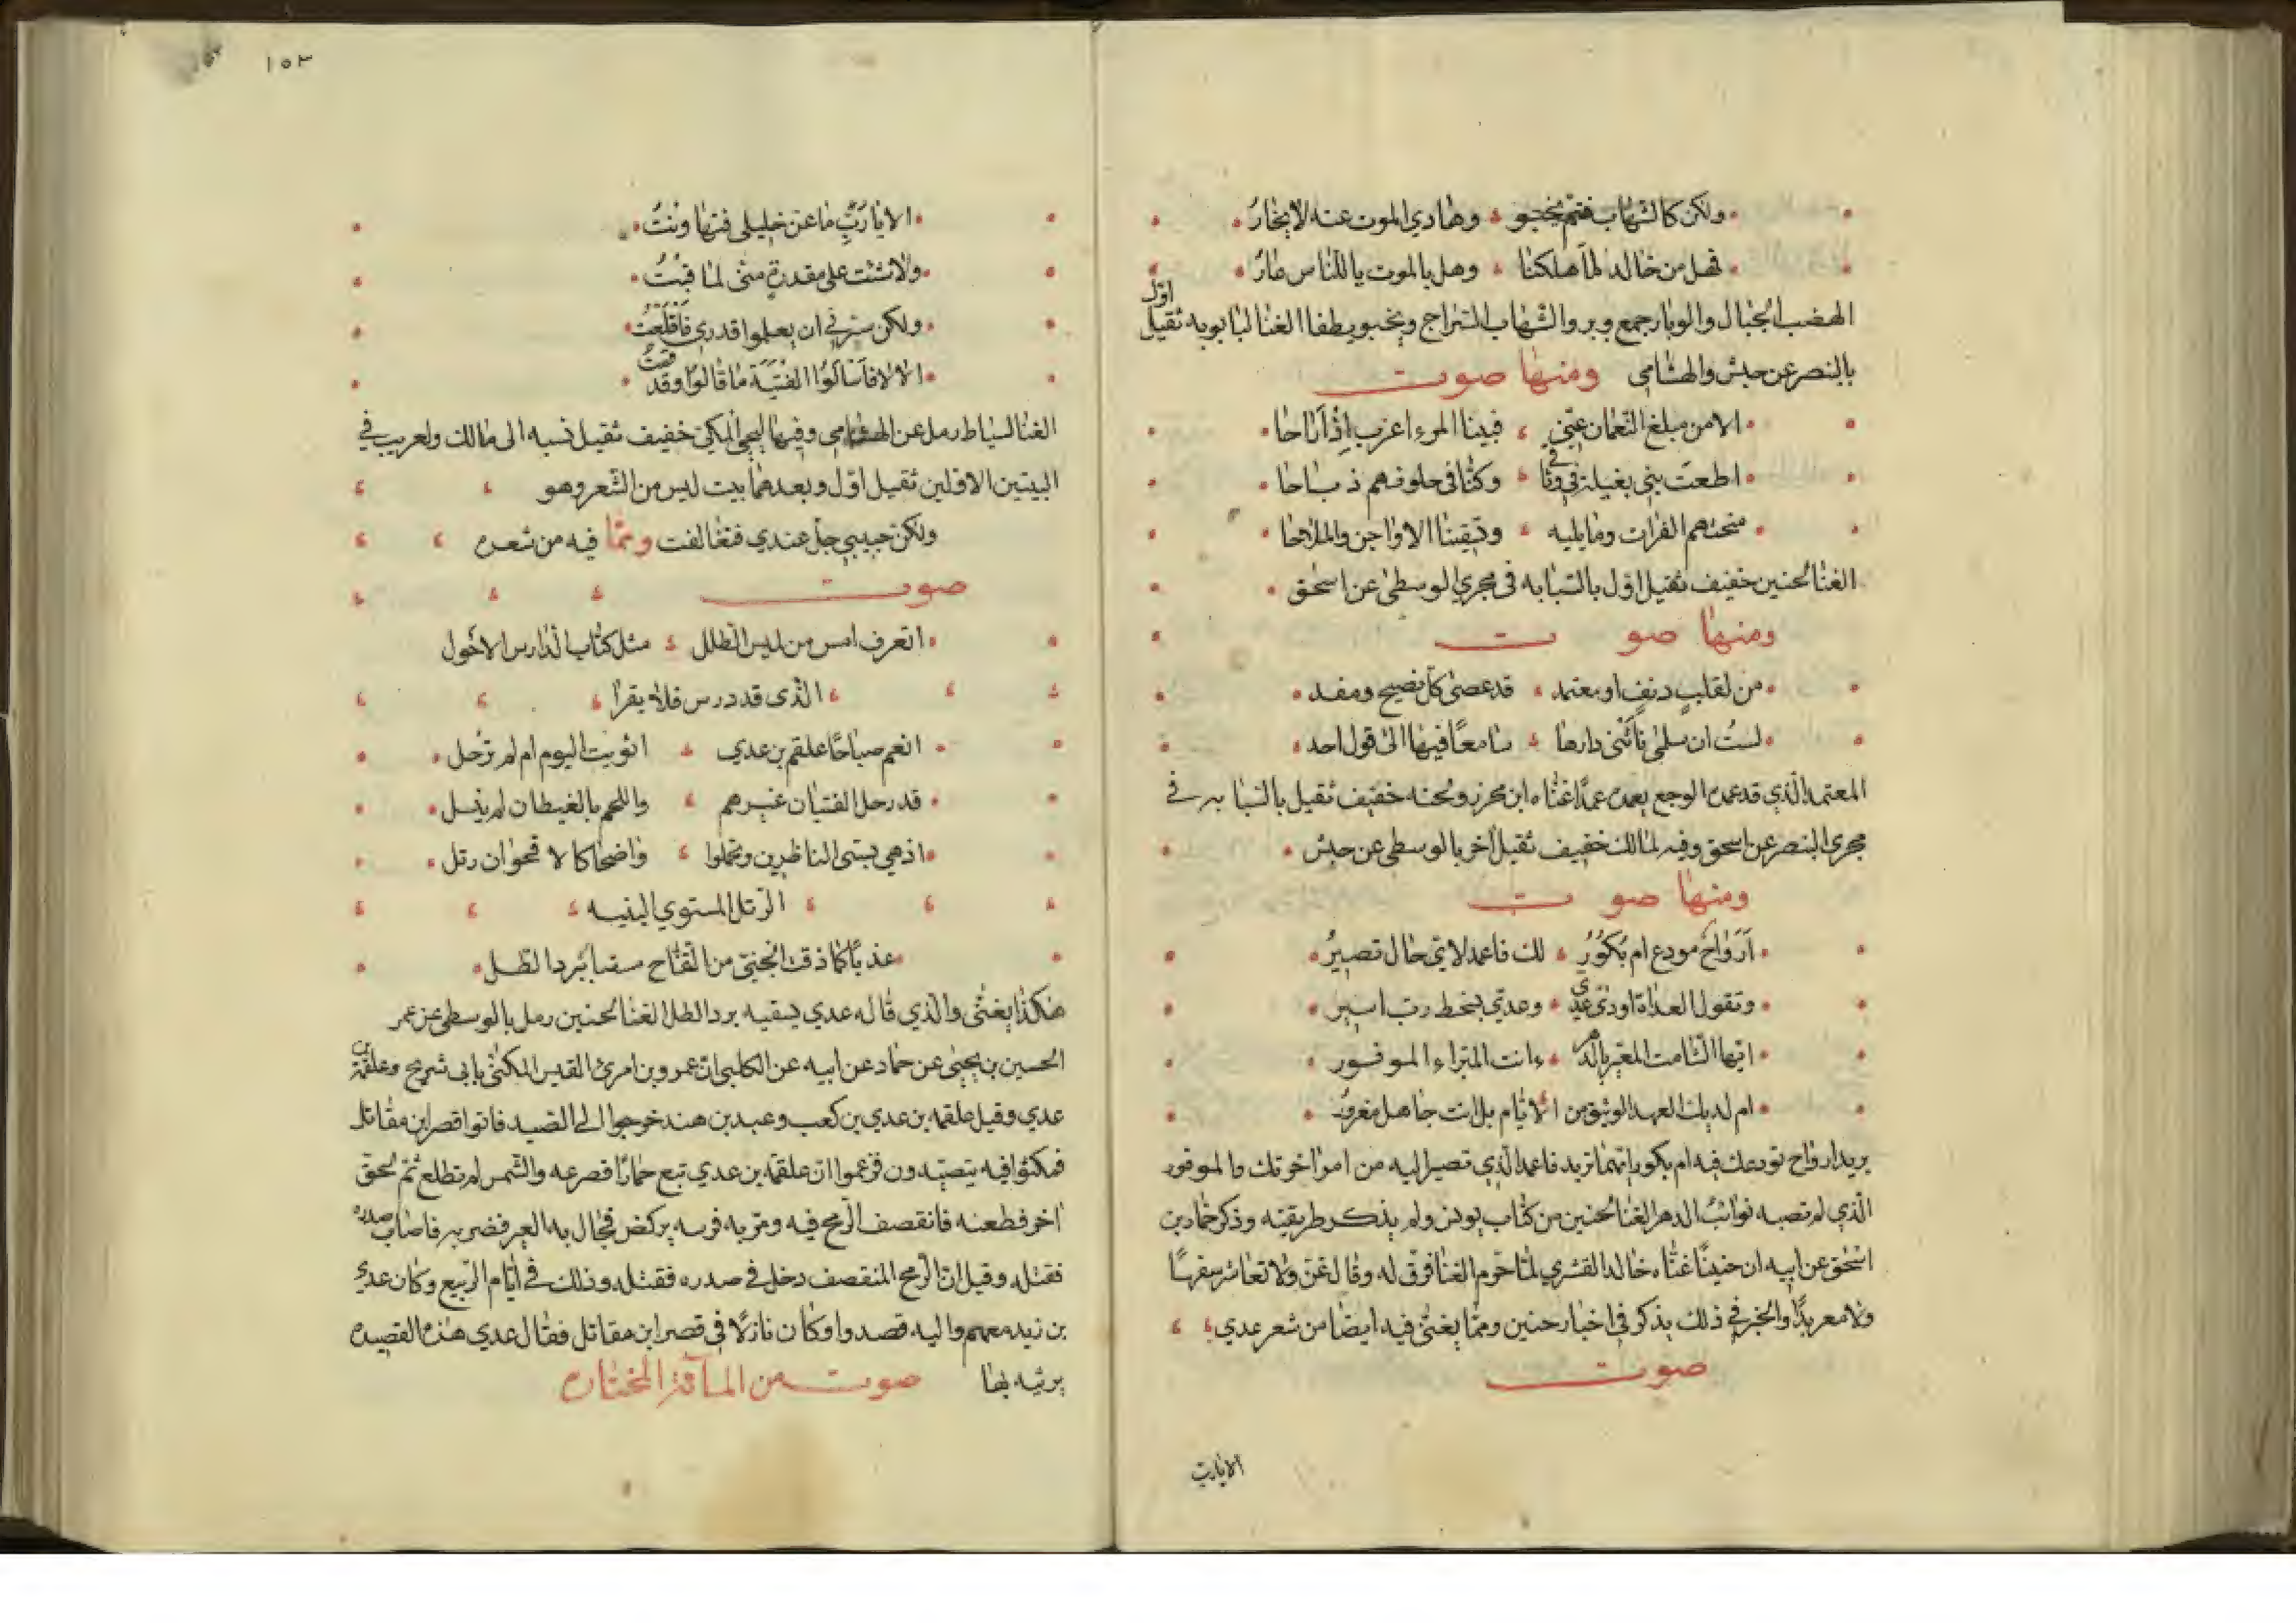 ولكن كالشهاب فثم يخبو وهادي الموت عنه لا يحار
فهل من خالد لما هلكنا وهل بالموت يا للناس عار
الهضب الجبال والوبار جمع وبر والشهاب السراج ويخبو يطفا الغنا لبابويه ثقيل اول
بالبنصر عن حبش والهشامي ومنها صوت
الا من مبلغ النعمان عني فبينا المرء اعزب اذ اراحا
اطعت بني بقيلة في وثاقا وكنا في حلوقهم ذباحا
منحتهم الفرات وما يليه وتسقينا الاواجن والملاحا
الغنا لحنين خفيف ثقيل اول بالسبابه في مجري الوسطى عن اسحق
ومنها صوت
من لقلب دنف او معتمد قد عصى كل نصيح ومفد
لست ان سلمى ناتني دارها سامعا فيها الى قول احد
المعتمد الذي قد عمده الوجع يعمده عمدا غناه ابن محرز ولحنه خفيف ثقيل بالسبابه في
مجرى البنصر عن اسحق وفيه لمالك خفيف ثقيل اخر بالوسطى عن حبش
ومنها صوت
ارواح مودع ام بكور لك فاعمد لاي حال تصير
وتقول العداة اودى عدي وعدي بسخط رب اسير
ايها الشامت المعير بالدهر ءانت المبراء الموفور
ام لديك العهد الوثيق من الايام بل انت جاهل مغرور
يريد ارواح تودعك فيه ام بكور ايهما تريد فاعمد الذي تصير اليه من امر اخرتك والموفور
الذي لم تصبه نوائب الدهر الغنا لحنين من كتاب يونس ولم يذكر طريقته وذكر حماد بن
اسحق عن ابيه ان حنينا غناه خالد القشري لما حرم الغنا فرق له وقال غن ولا تعاشر سفيها
ولا معربدا والخبر في ذلك يذكر في اخبار حنين ومما يغنى فيه ايضا من شعر عدي
صوت
الايارب
١٥٣
الا يا رب ما عن خليلي فتها ونت
ولا شئت على مقدرة مني لما قبت
ولكن سرني ان يعلموا قدري فاقلعت
الا لا فاسالوا الفتية ما قالوا وقد قمت
الغنا لسياط رمل عن الهشامي وفيها ليحي المكي خفيف ثقيل نسبه الى مالك ولعريب في
البيتين الاولين ثقيل اول وبعدهما بيت ليس من الشعر وهو
ولكن حبيبي جل عندي فتغالفت ومما فيه من شعره
صوت
اتعرف امس من لميس الطلل مثل كتاب الدارس الاحول
الذي قد درس فلا يقرا
انعم صباحا علقم بن عدي اثويت اليوم ام لم ترحل
قد رحل الفتيان عيرهم واللحم بالغيطان لم ينسل
اذ هي تسبى الناظرين وتجلوا واضحا كالاقحوان رتل
الرتل المستوي البنيه
عذبا كما ذقت الجني من التفاح سقيا ببرد الطل
هكذا يغنى والذي قاله عدي يسقيه برد الطل الغنا لحنين رمل بالوسطى عن عمر
الحسين بن يحيى عن حماد عن ابيه عن الكلبي ان عمرو بن امرئ القيس المكنى بابي شريح وعلقمة بن
عدي وقيل علقمه بن عدي بن كعب وعبد بن هند خرجوا الى الصيد فاتوا قصر ابن مقاتل
فمكثوا فيه يتصيدون فزعموا ان علقمه بن عدي تبع حمارا فصرعه والشمس لم تطلع ثم لحق
اخر فطعنه فانقصف الرمح فيه ومر به فرسه يركض فجال به العير فضربه فاصاب صدره
فقتله وقيل ان الرمح المنقصف دخل في صدره فقتله وذلك في ايام الربيع وكان عدي
بن زيد معهم واليه قصدوا وكان نازلا في قصر ابن مقاتل فقال عدي هذه القصيده
يرثيه بها صوت من المآئة المختاره